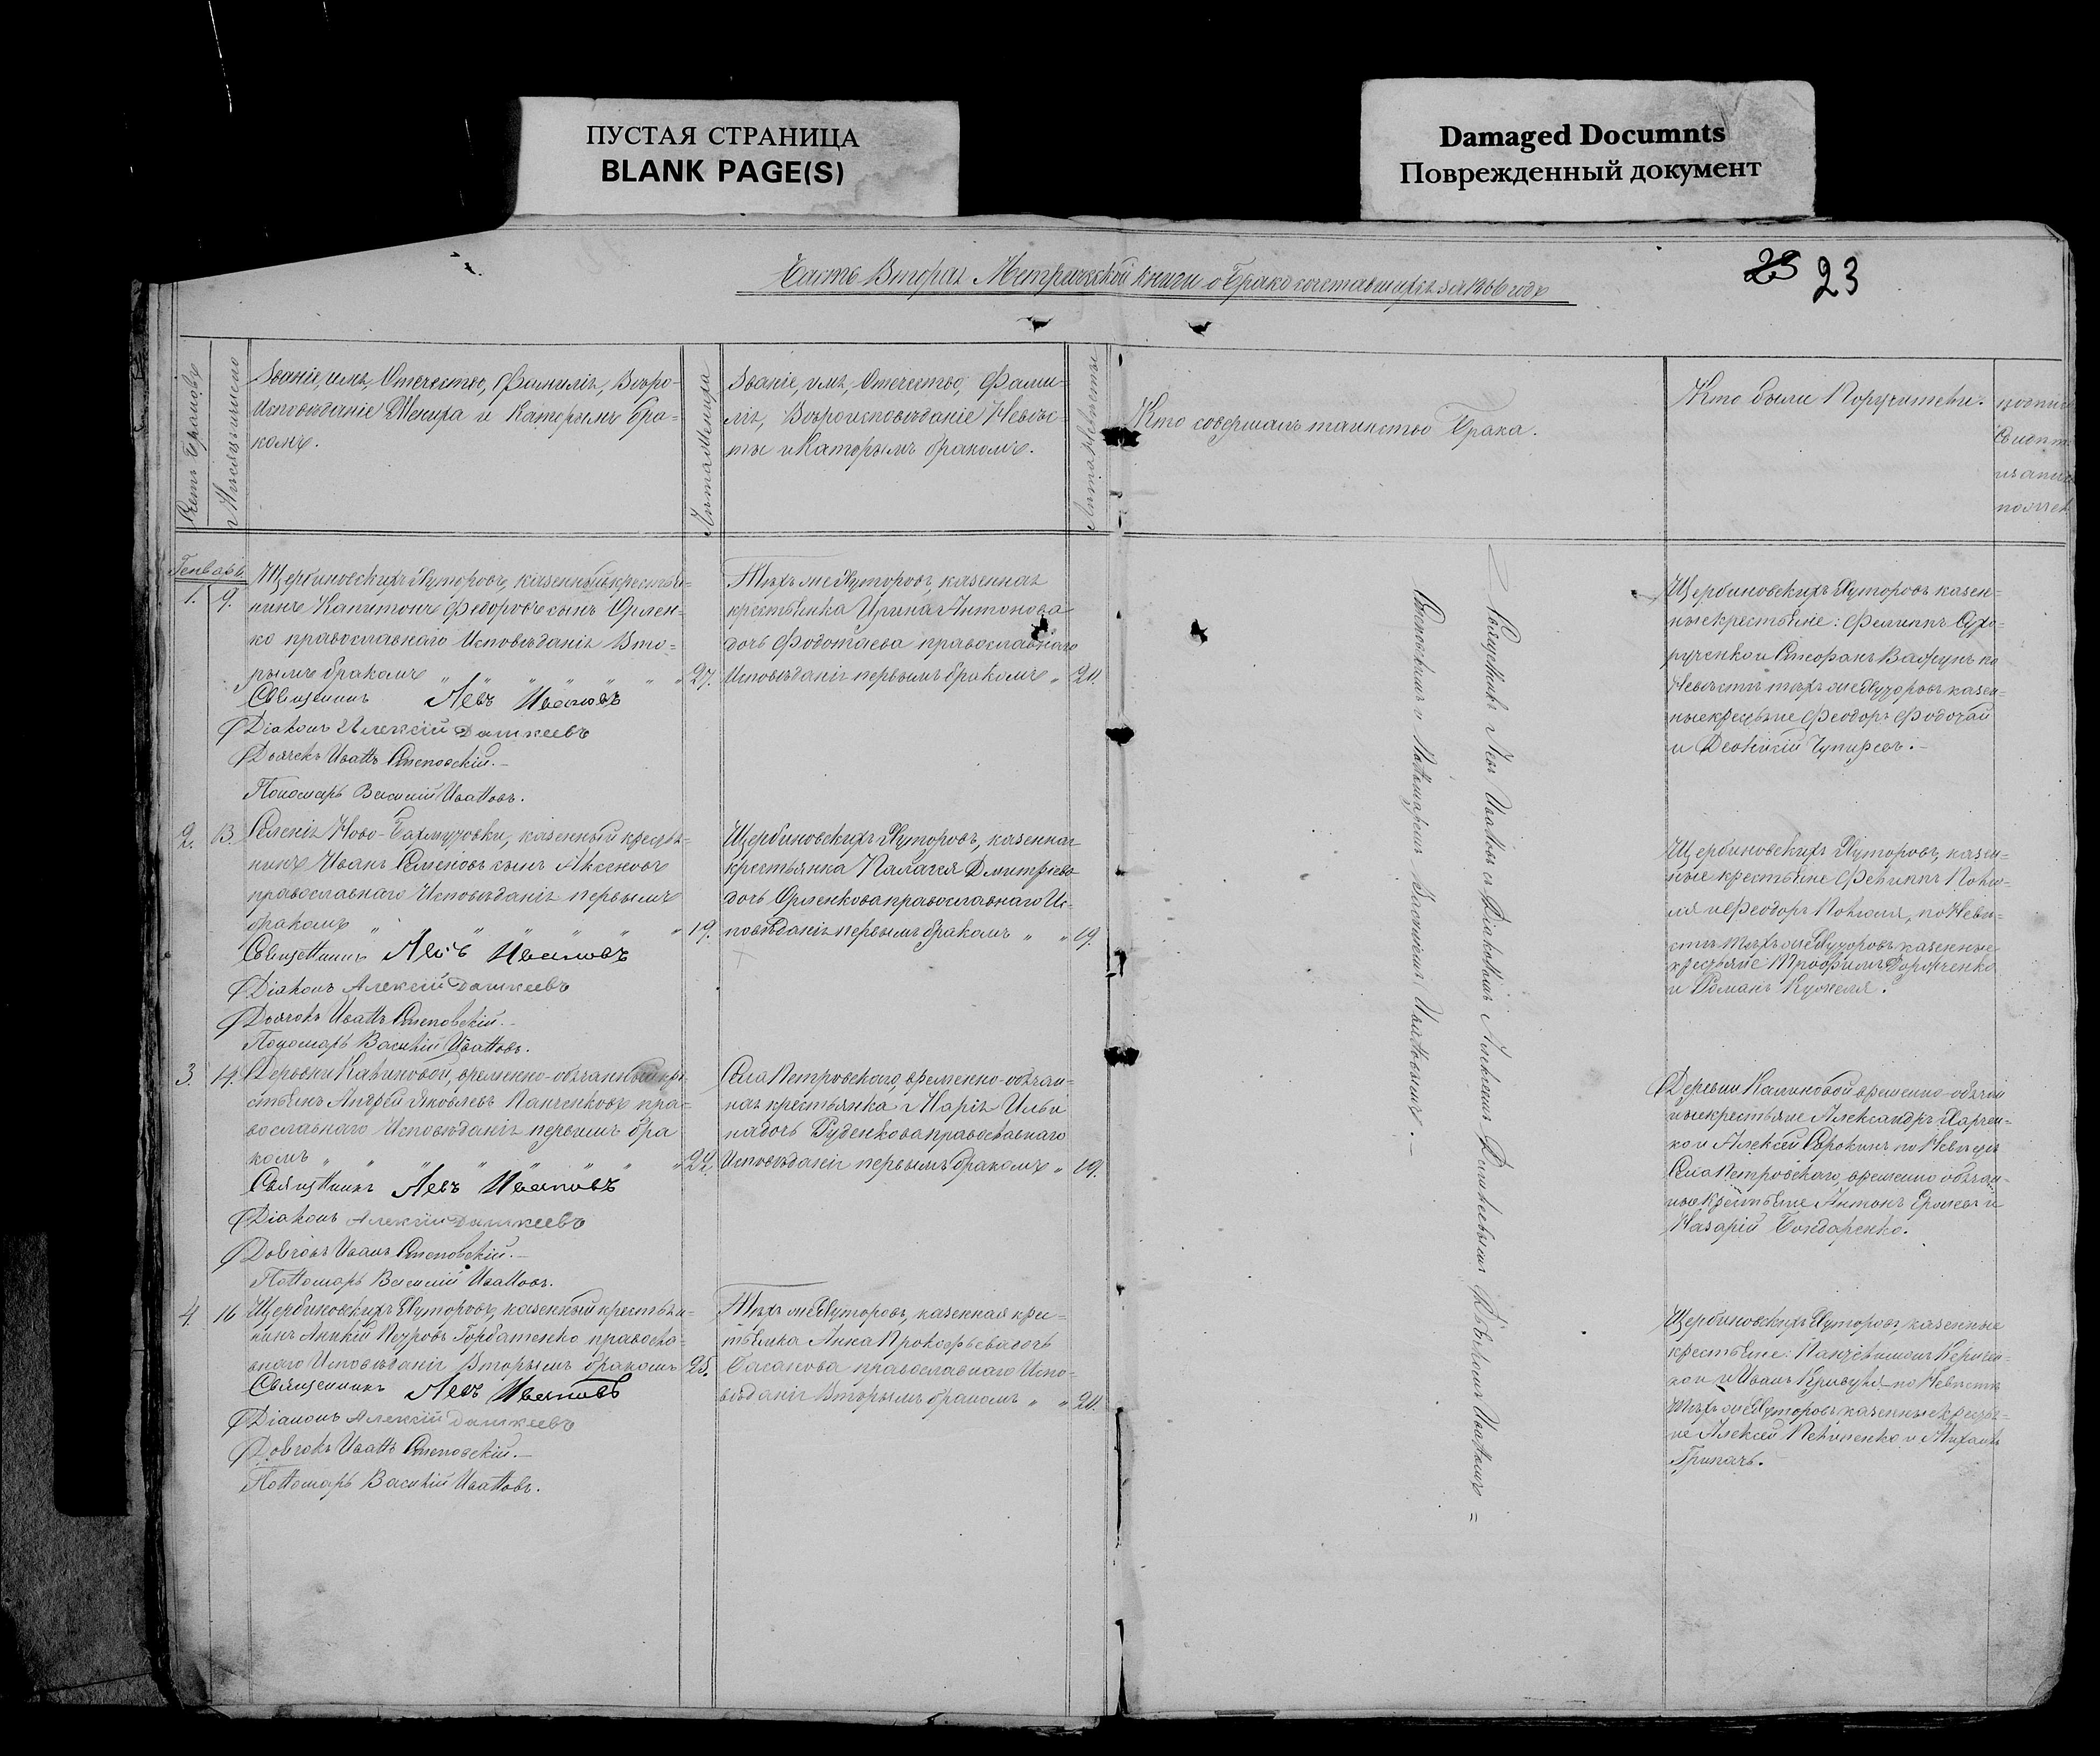 ПУСТАЯ СТРАНИЦА
BLANK PAGE(S)
Damaged Documnts
Поврежденный документ
Часть Вторая Метрической книги о бракосочетавшихся за 1866 годъ
23 23
Счетъ браковъ
Мѣсяцъ и число
Званіе, имя, Отечество, Фамилія, Вѣро-
Исповѣданіе Жениха и Каторымъ бра-
комъ.
Лѣта Жениха
Званіе, имя, Отечество, Фами-
лія, Вѣроисповѣданіе Невѣс-
ты и Каторымъ бракомъ.
Лѣта Невѣсты
Кто совершалъ таинство Брака.
Кто были Поручители.
Генварь
1. 9. Щербиновскихъ Хуторовъ, казенный крестья-
нинъ Капитонъ Федоровъ сынъ Орлен-
ко православнаго Исповѣданія Вто-
рымъ бракомъ " " " " " " 27.
Священникъ Левъ Ивановъ
Діаконъ Алексій Дашкеевъ
Дьячекъ Иванъ Степовскій.-
Пономарь Василій Ивановъ.
Тѣхъ же Хуторовъ, казенная
крестьянка Ирина Антонова
дочь Федотаева православнаго
Исповѣданія первымъ бракомъ "
Щербиновскихъ Хуторовъ казен-
ные крестьяне: Филиппъ Сухо-
рученко и Стефанъ Важунъ по
Невѣстѣ тѣхъ же Хуторовъ казен-
ные крестьяне Феодоръ Федотай
и
2. 13. Селенія Ново-Бахмутовки, казенный крестья-
нинъ Иванъ Семеновъ сынъ Аксеновъ
православнаго Исповѣданія первымъ
бракомъ " " " " " " 19.
Священникъ Левъ Ивановъ
Діаконъ Алексій Дашкеевъ
Дьячокъ Иванъ Степовскій.-
Пономарь Василій Ивановъ.
Щербиновскихъ Хуторовъ, казенная
крестьянка Палагея Дмитріева
дочь Орленкова православнаго Ис-
повѣданія первымъ бракомъ " " 19.
Щербиновскихъ Хуторовъ, казен-
ные крестьяне Филиппъ
и Феодоръ по Невѣ-
стѣ тѣхъ же Хуторовъ казенные
крестьяне: Трофимъ
и Романъ Кужеля.
3. 14. Деревни Калиновой, временно-обязанный кре-
стьянъ Андрей Яковлевъ Панченковъ пра-
вославнаго Исповѣданія первымъ бра
комъ " " " " " " " 22.
Священникъ Левъ Ивановъ
Діаконъ Алексій Дашкеевъ
Дьячокъ Иванъ Степовскій.-
Пономарь Василій Ивановъ.
Села Петровскаго, временно-обязан-
ная крестьянка Марія Ильи
на дочь Руденкова православнаго
Исповѣданія первымъ бракомъ " 19.
Деревни Калиновой временно-обязан
ные крестьяне Александръ Харчен-
ко и Алексей Сорокинъ по Невѣстѣ
Села Петровскаго, временно обязан-
ные крестьяне Антонъ и
Назарій Бондаренко.
4. 16 Щербиновскихъ Хуторовъ, казенный крестья-
нинъ Аникій Петровъ Горбатенко правосла-
внаго Исповѣданія Вторымъ бракомъ 25.
Священникъ Левъ Ивановъ
Діаконъ Алексій Дашкеевъ
Дьячокъ Иванъ Степовскій.-
Пономарь Василій Ивановъ.
Тѣхъ же Хуторовъ, казенная кре-
стьянка Анна Прокофьева дочь
Басанова православнаго Испо-
вѣданія Вторымъ бракомъ " "
Щербиновскихъ Хуторовъ, казенные
крестьяне:
и Иванъ по Невѣстѣ
тѣхъ же Хуторовъ казенные крестья-
не Алексей и Михаилъ
Грипачь.
Левъ Ивановъ съ Діакономъ Алексіемъ Дашкеевымъ Дьячкомъ Иваномъ =
Степовскимъ и Пономаремъ Василіемъ Ивановымъ.-